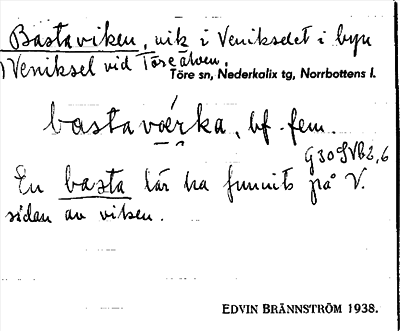 Bastaviken, vik i Venikselet i byn
Veniksel vid Töreälven.
Töre sn, Nederkalix tg, Norrbottens l.
basta vǽrka, bf. fem.
G30SVb2,6
En basta lär ha funnits på V.
sidan av viken.
EDVIN BRÄNNSTRÖM 1938.